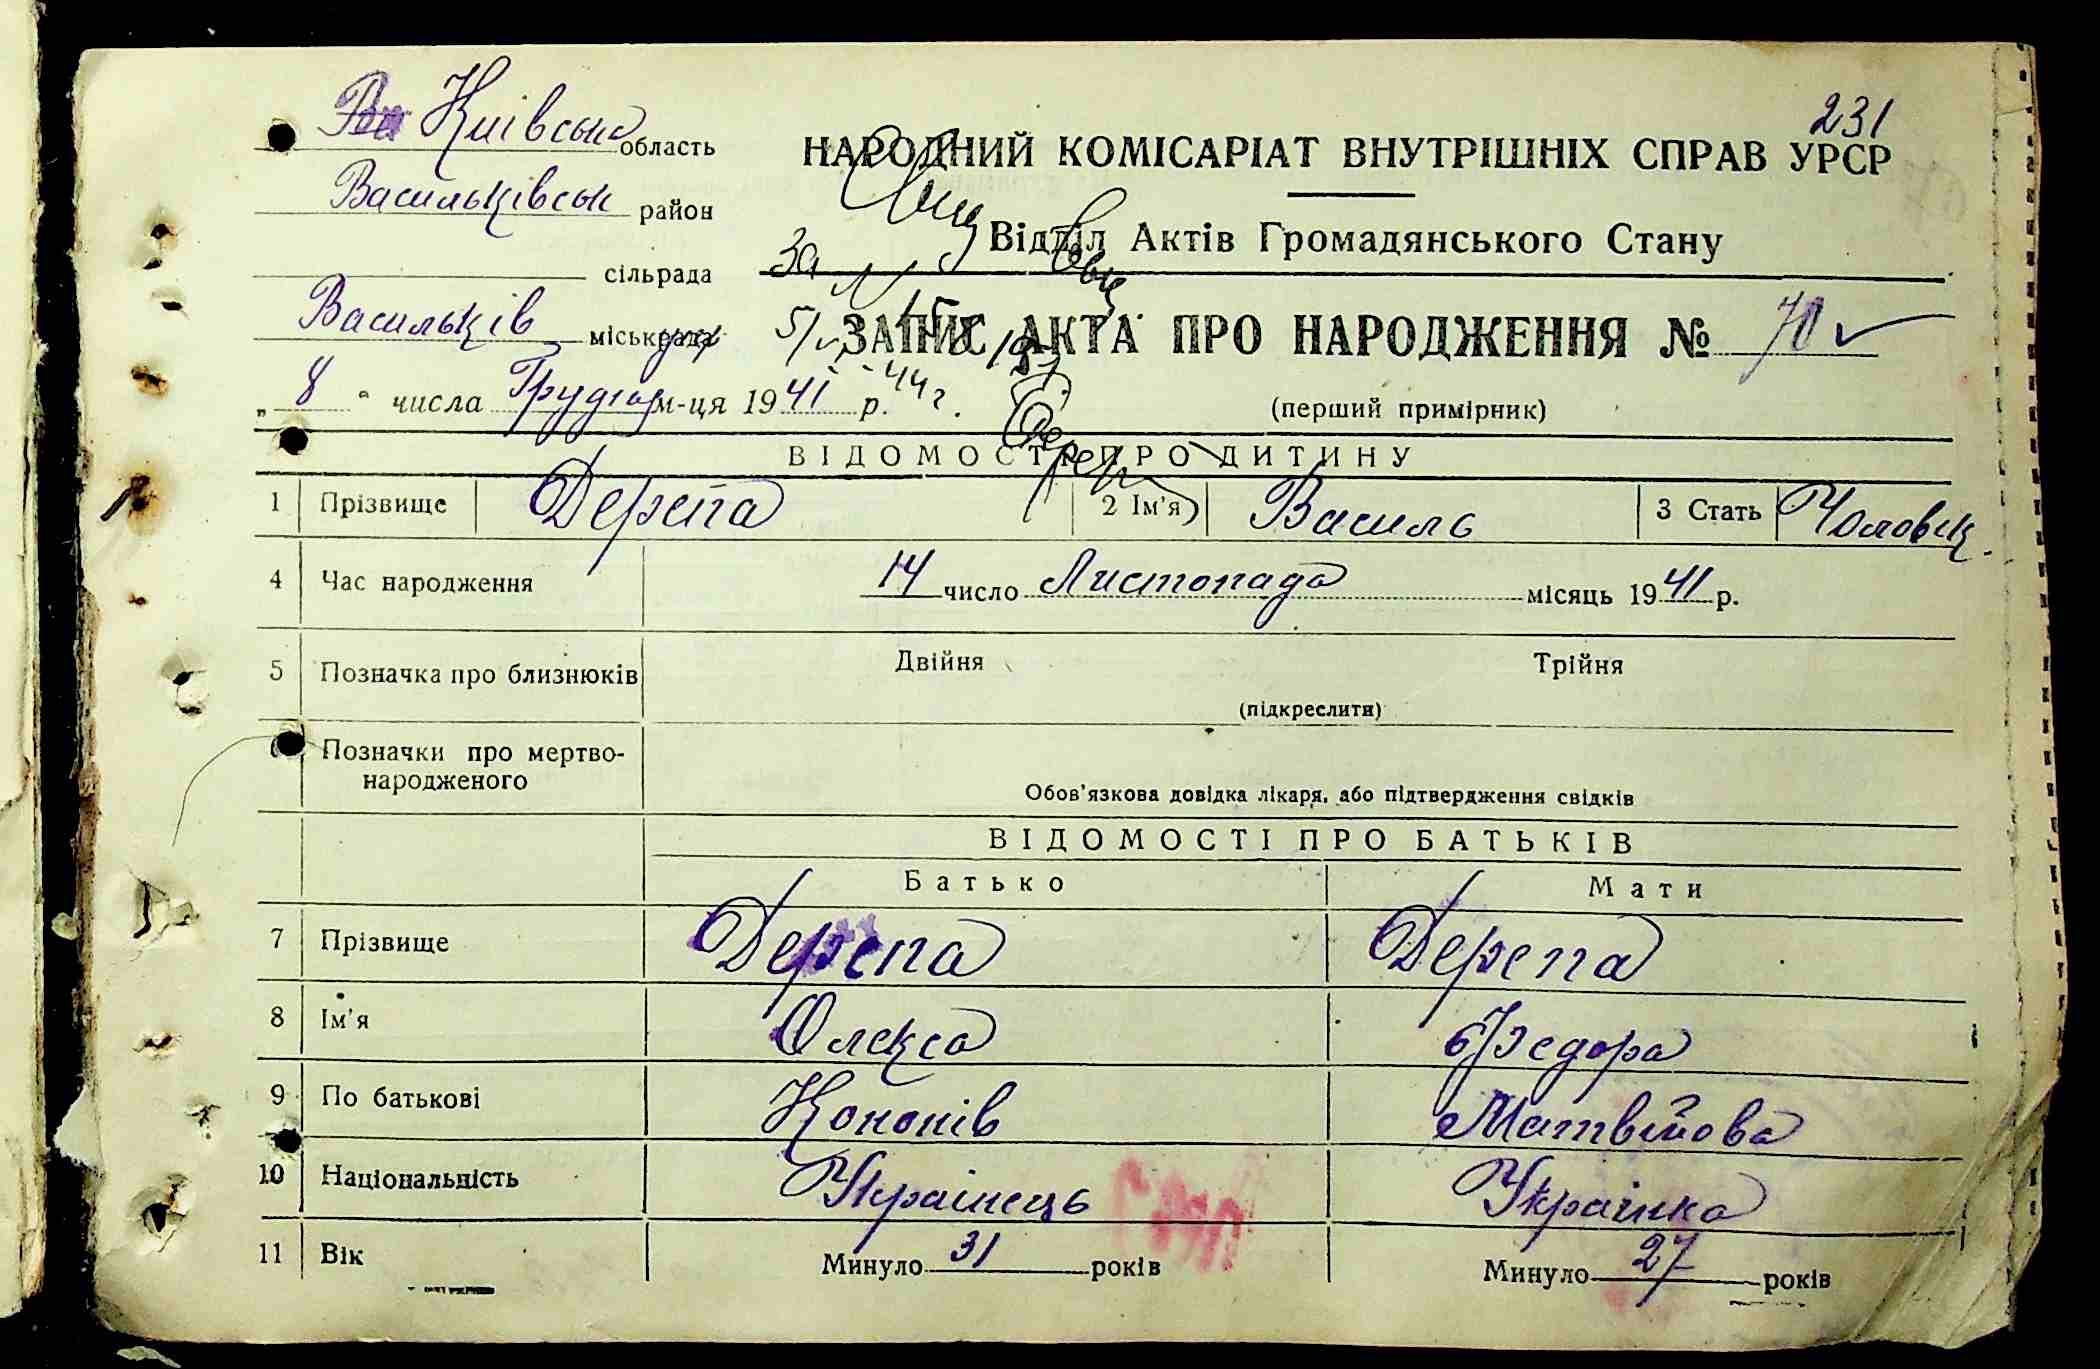 231
Київська область
НАРОДНИЙ КОМІСАРІАТ ВНУТРІШНІХ СПРАВ УРСР
Васильківськ район
Відділ Актів Громадянського Стану
сільрада
Васильків міськрада
ЗАПИС АКТА ПРО НАРОДЖЕННЯ № 70
„ 8 “ числа Грудня м-ця 1941 р.
(перший примірник)
ВІДОМОСТІ ПРО ДИТИНУ
1 Прізвище Дерепа 2 Ім'я Василь 3 Стать Чоловік
4 Час народження 14 число Листопада місяць 1941 р.
5 Позначка про близнюків Двійня Трійня
(підкреслити)
6 Позначки про мертво-
народженого
Обов'язкова довідка лікаря, або підтвердження свідків
ВІДОМОСТІ ПРО БАТЬКІВ
Батько Мати
7 Прізвище Дерепа Дерепа
8 Ім'я Олекса Федора
9 По батькові Кононів Матвійова
10 Національність Українець Українка
11 Вік Минуло 31 років Минуло 27 років